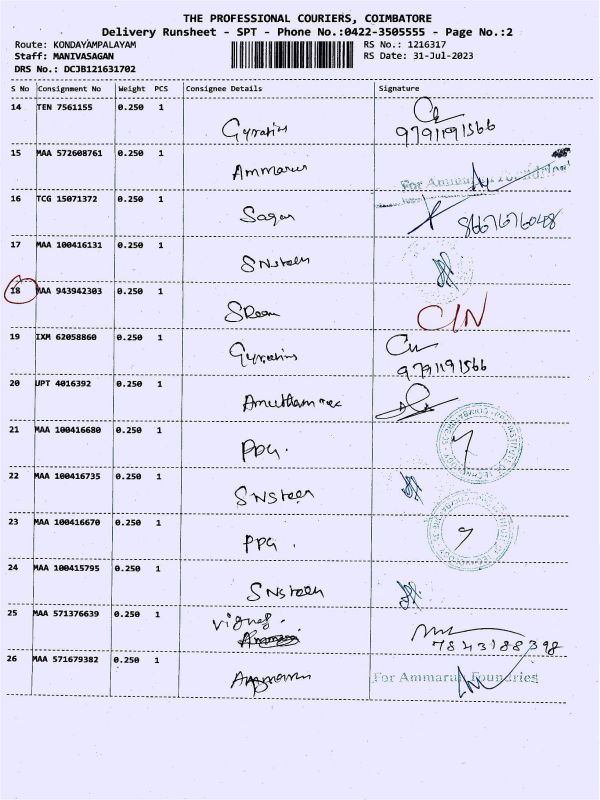 THE PROFESSIONAL COURIERS, COIMBATORE
Delivery Runsheet - SPT - Phone No.:0422-3505555 - Page No.:2
Route: KONDAYAMPALAYAM RS No.: 1216317
Staff: MANIVASAGAN RS Date: 31-Jul-2023
DRS No.: DCJB121631702
S No Consignment No Weight PCS Consignee Details Signature
14 TEN 7561155 0.250 1
9791191566
15 MAA 572608761 0.250 1
Ammarun
For Ammarun
16 TCG 15071372 0.250 1
Sagan
17 MAA 100416131 0.250 1
SNSteen
18 MAA 943942303 0.250 1
CIN
19 IXM 62058860 0.250 1
9791191566
20 UPT 4016392 0.250 1
21 MAA 100416680 0.250 1
PPG.
22 MAA 100416735 0.250 1
SNSteen
23 MAA 100416670 0.250 1
PPG.
24 MAA 100415795 0.250 1
SNSteen
25 MAA 571376639 0.250 1
7843188398
26 MAA 571679382 0.250 1
For Ammarun Foundries